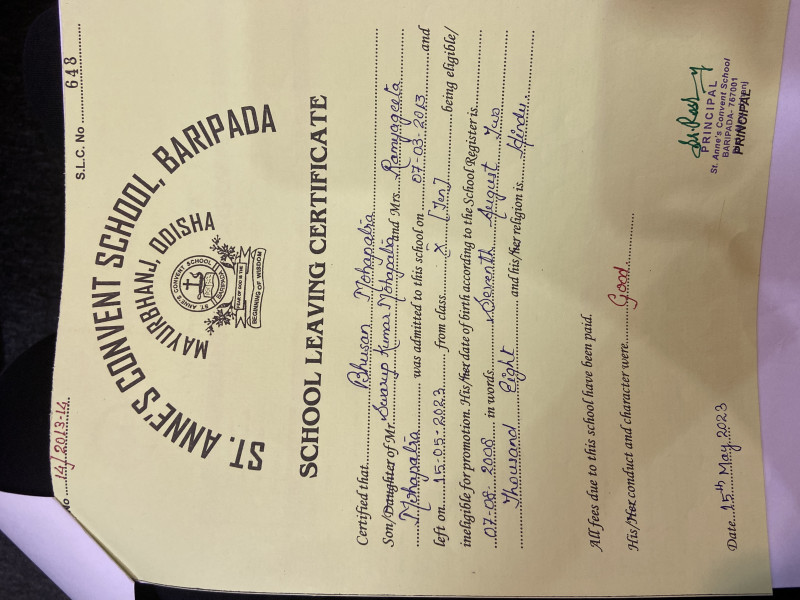 No ... 14/2013-14
S.L.C. No ... 648
ST. ANNE'S CONVENT SCHOOL, BARIPADA
MAYURBHANJ, ODISHA
ST. ANNE'S CONVENT SCHOOL
FEAR OF GOD IS THE
BEGINNING OF WISDOM
SCHOOL LEAVING CERTIFICATE
Certified that Bhusan Mohapatra
Son/Daughter of Mr. Swarup Kumar Mohapatra and Mrs. Ramyageeta
Mohapatra was admitted to this school on 07-03-2013 and
left on 15-05-2023 from class X [Ten] being eligible/
ineligible for promotion. His/her date of birth according to the School Register is
07-08-2008 in words Seventh August Two
Thousand Eight and his/her religion is Hindu.
All fees due to this school have been paid.
His/Her conduct and character were Good
Date 15th May 2023
PRINCIPAL
St. Anne's Convent School
BARIPADA-767001
PRINCIPAL